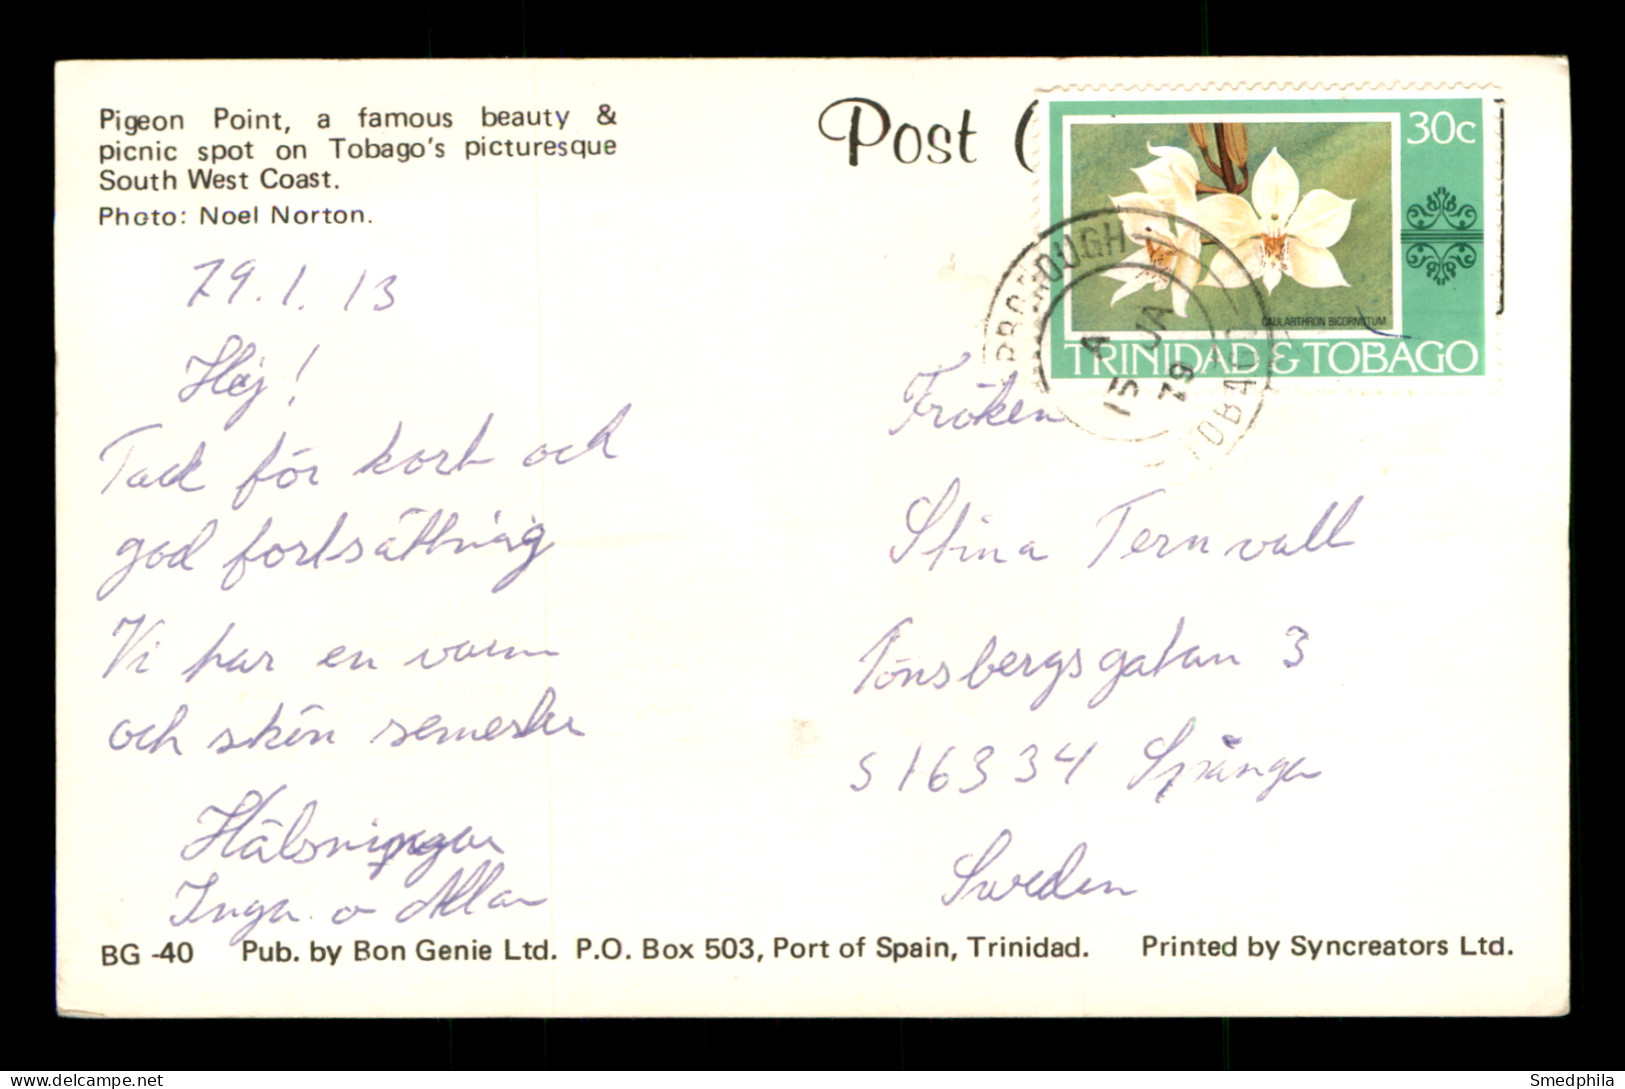 Pigeon Point, a famous beauty &
picnic spot on Tobago's picturesque
South West Coast.
Photo: Noel Norton.
79.1.13
Hej!
Tack för kort och
god fortsättning
Vi har en varm
och skön semester
Hälsningar
Inga o Allan
Post
30c
CAULARTHRON BICORNUTUM
TRINIDAD & TOBAGO
A
15 JA
79
TOBAGO
Fröken
Stina Ternvall
Tönsbergsgatan 3
S 16334 Spånga
Sweden
BG -40 Pub. by Bon Genie Ltd. P.O. Box 503, Port of Spain, Trinidad. Printed by Syncreators Ltd.
Smedphila